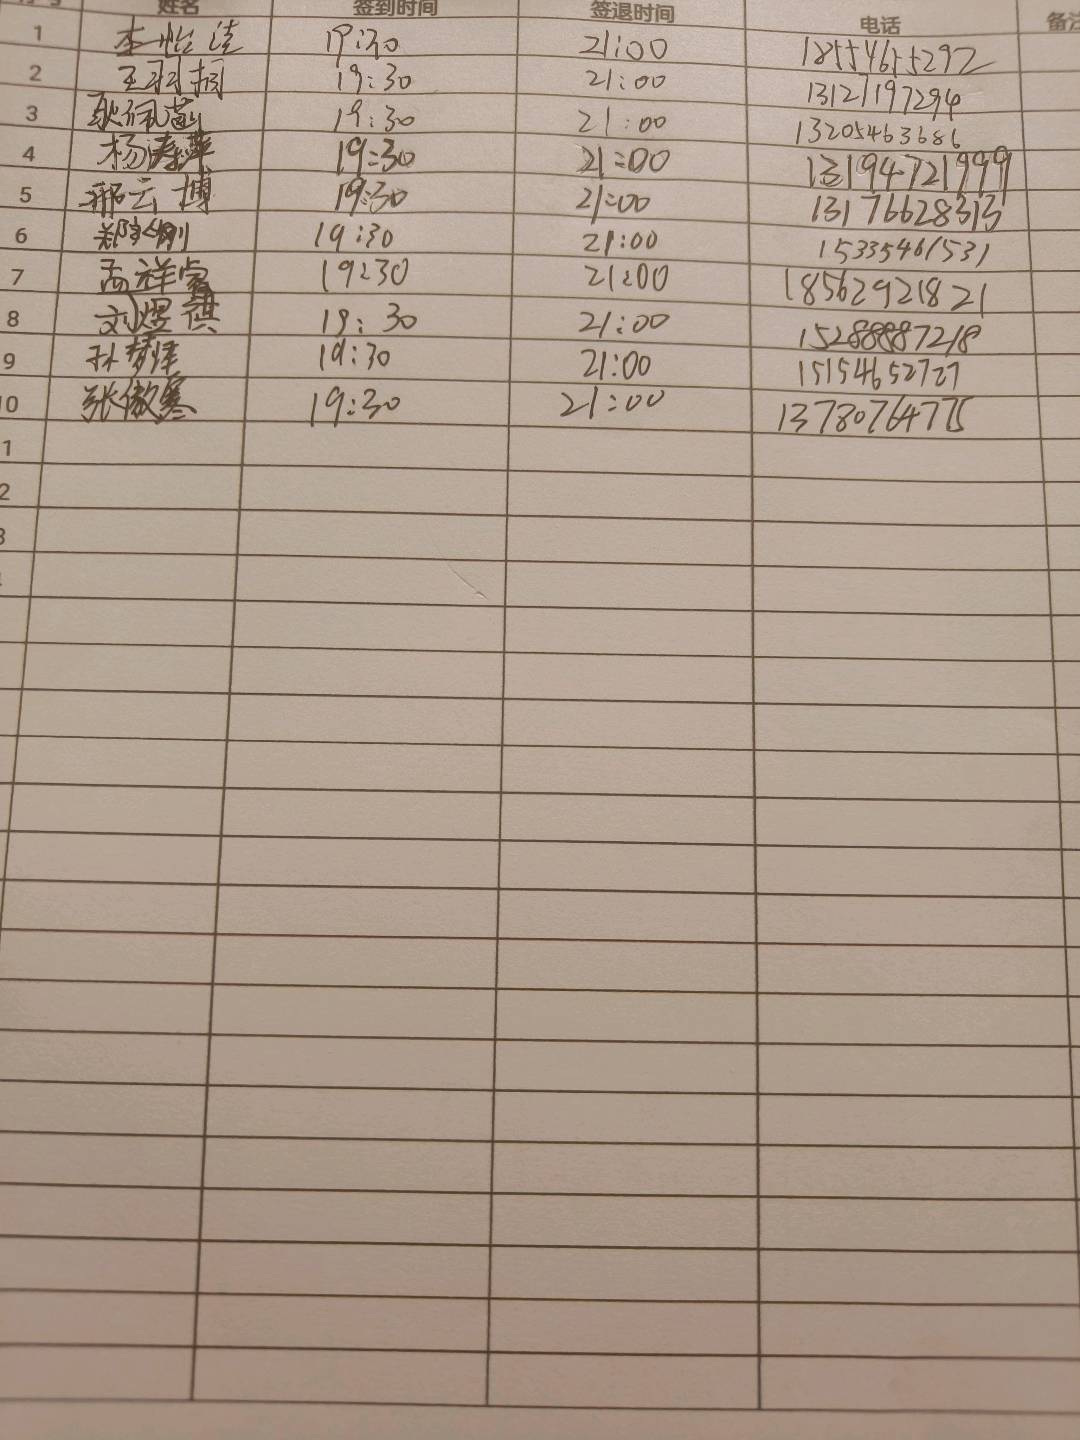 姓名 签到时间 签退时间 电话 备注
1 李怡 19:30 21:00 18554655292
2 王羽桐 19:30 21:00 13127197294
3 耿佩 19:30 21:00 13205463686
4 杨涛萍 19:30 21:00 13194721999
5 邢云博 19:30 21:00 13176628313
6 郑 刚 19:30 21:00 15335461531
7 孟祥睿 19:30 21:00 18562921821
8 刘煜祺 19:30 21:00 15288887218
9 孙梦 19:30 21:00 15154652727
10 张傲寒 19:30 21:00 13780764775
1
2
3